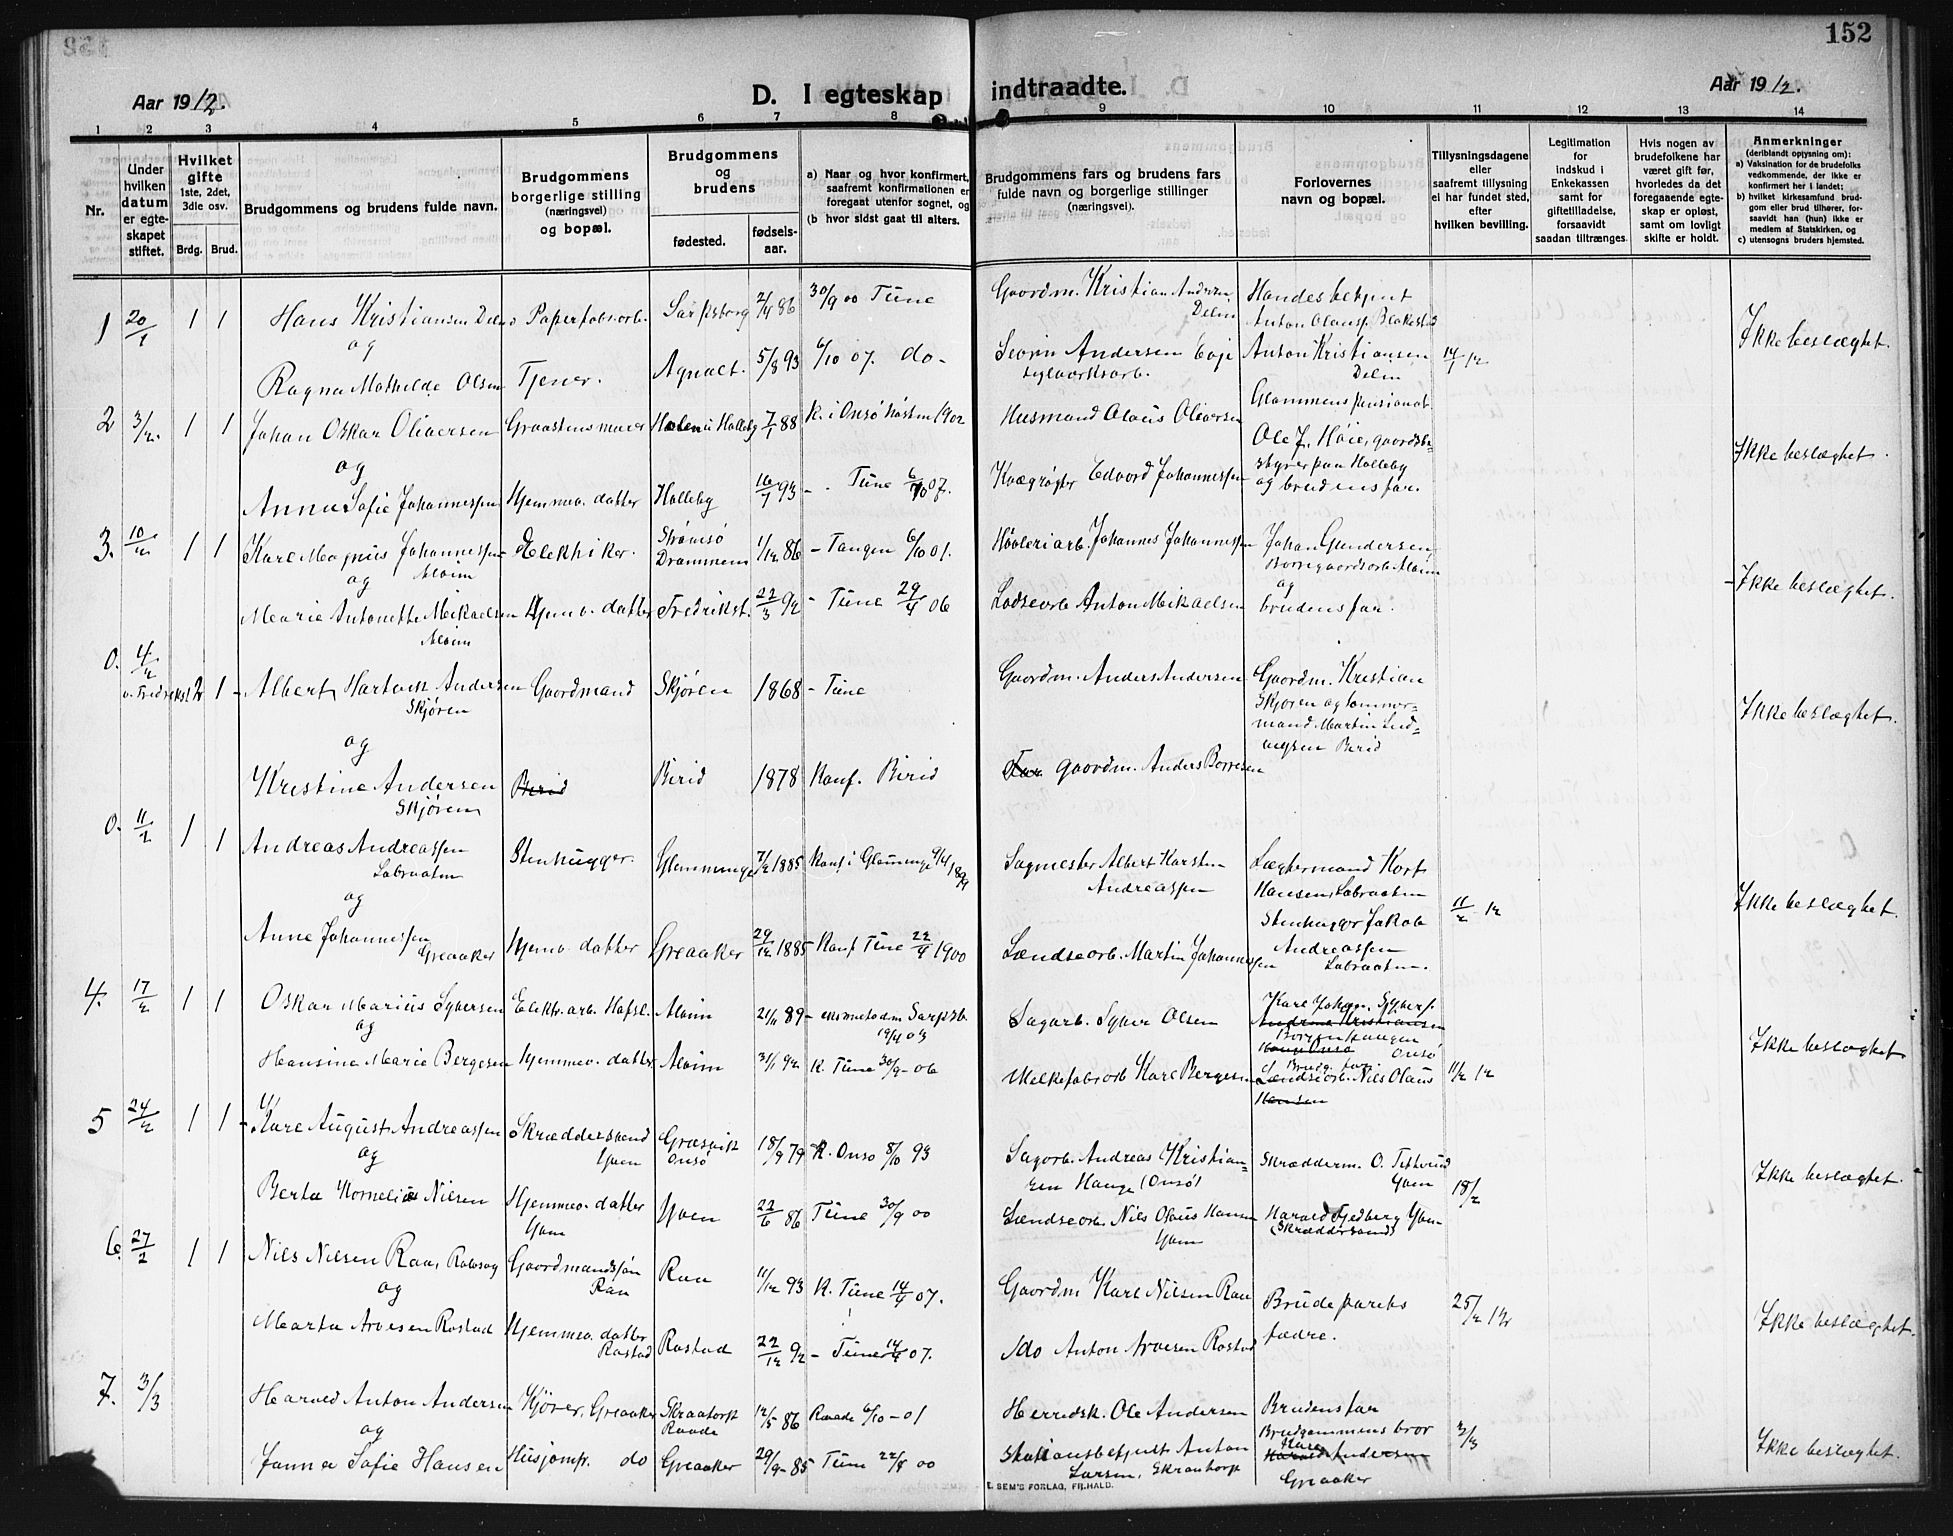 152
Aar 1912.
D. I egteskap indtraadte.
Aar 1912.
1 2 3 4 5 6 7 8 9 10 11 12 13 14
Nr.
Under hvilken datum er egteskapet stiftet.
Hvilket gifte 1ste, 2det, 3dle osv.
Brdg. Brud.
Brudgommens og brudens fulde navn.
Brudgommens borgerlige stilling (næringsvei) og bopæl.
Brudgommens og brudens
fødested. fødsels-aar.
a) Naar og hvor konfirmert, saafremt konfirmationen er foregaat utenfor sognet, og
(b hvor sidst gaat til alters.
Brudgommens fars og brudens fars fulde navn og borgerlige stillinger (næringsvei).
Forlovernes navn og bopæl.
Tillysningsdagene eller saafremt tillysning ei har fundet sted, efter hvilken bevilling.
Legitimation for indskud i Enkekassen samt for giftetilladelse, forsaavidt saadan tiltrænges.
Hvis nogen av brudefolkene har været gift før, hvorledes da det foregaaende egteskap er opløst, samt om lovligt skifte er holdt.
Anmerkninger (deriblandt opjysning om): a) Vaksination for de brudefolks vedkommende, der ikke er konfirmert her i landet; b) hvilket kirkesamfund brudgom eller brud tilhører, forsaavidt han (hun) ikke er medlem af Statskirken, og c) utensogns bruders hjemsted.
1 20/1 1 1 Hans Kristiansen Delin Papirfabarb. Sarpsborg 2/4 86 30/9 00 Tune Gaardm. Kristian Andersen Delin Handesbetjent Anton Olausf. Blakestad
og
Ragna Mathilde Olsen Tjener. Agnalt. 5/8 93 6/10 07. do- Severin Andersen Eoje Anton Kristiansen Delin 14/1 12 Ikke beslægtet.
2 3/2. 1 1 Johan Oskar Oliversen Graastensmurer Holen i Halleby 7/1 88 K. i Onsø høsten 1902 Husmand Olaus Oliversen Glommens pensionat Ole J. Høie, gaardsbestyrer paa Halleby og brudens far.
og
Anna Sofie Johannessen Hjemmev. datter Halleby 16/7 93 - Tune 6/10 07. Kvægrøgter Edvard Johannessen Ikke beslægtet.
3. 10/2 1 1 Karl Magnus Johannessen Alvim Elektriker. Strømsø Drammem 1/12 86 - Tangen 6/10 01. Høvleriarb. Johannes Johannessen Johan Gundersen, Borregaardsarb. Alvim
og og
Marie Antonette Mikaelsen Alvim Hjemv. datter Fredrikst. 22/3 92 - Tune 29/4 06 Lodsearb. Anton Mikaelsen brudens far. Ikke beslægtet.
0. 4/2 v. Fredrikst. 2 1 Albert Hartvik Andersen Skjøren Gaardmand Skjøren 1868 - Tune Gaardm. Anders Andersen Gaardm. Kristian Skjøren og tømmermand. Martin Ludvigsen Birid
og
Kristine Andersen Skjøren Birid Birid 1878 Konf. Birid Far Gaardm. Anders Borresen Ikke beslægtet.
0. 11/2 1 1 Andreas Andreassen Labraaten Stenhugger. Glemminge 7/2 1885 Konf. i Glemminge 9/4 1899 Sagmester Albert Karsten Andreassen Lægtermand Kort Hansen, Labraaten Stenhugger Jakob Andreassen Labraaten.
og
Anne Johannessen Greaaker Hjemv. datter Greaaker 29/12 1885 Konf. Tune 22/4 1900 Lændsearb. Martin Johannessen 11/2 12 Ikke beslægtet.
4. 17/2 1 1 Oskar Marius Syversen Elektr. arb. Hafsl. Alvim 21/11 89 - i metodm Sarpsb. 19/4 03 Sagarb. Syver Olsen Karl Johan Syvers.
og
Hansine Marie Bergesen Hjemmev. datter. Alvim 31/1 92 K. Tune 30/9 - 06 Melkefabarb. Karl Bergesen Brudg. far Lændsearb. Nils Olaus Hansen 11/2 12 Ikke beslægtet
5 24/2 1 1 Karl August Andreassen Skræddersvend Yven Græsvik Onsø 18/9 79 K. Onsø 8/10 93 Sagarb. Andreas Kristiansen Hauge (Onsø) Skrædderm. O. Tetterud Yven
og
Berta Kornelia Nilsen Hjemmev. datter Yven Yven 22/6 86 Tune 30/9 00 Lændsearb. Nils Olaus Hansen Yven Harald Fjedberg Yven (Skræddersvend) 18/2 Ikke beslægtet.
6. 27/2 1 1 Nils Nilsen Raa, Rolvsøy Gaardmandssøn Raa Raa 11/12 93 K. Tune 14/4 07. Gaardm Karl Nilsen Raa Brudeparets fædre. 25/2 12
og
Marta Arvesen Rostad Hjemmev. datter Rostad Rostad 22/12 92 - Tune 14/4 07. do Anton Arvesen Rostad Ikke beslægtet.
7. 3/3 Harald Anton Andersen Kjører, Greaaker Skraatorp Raade 12/5 86 Raade 6/10 - 01 Herredsk. Ole Andersen Brudens far
og
Janna Sofie Hansen Husjomf. do Greaaker 29/9 - 85 Tune 22/4 00 Stationsbetjent Anton Larsen, Skraatorp Brudgommens bror Karl Harald Andersen Greaaker 3/3 Ikke beslægtet.
E. SEM'S FORLAG, FR.HALD.